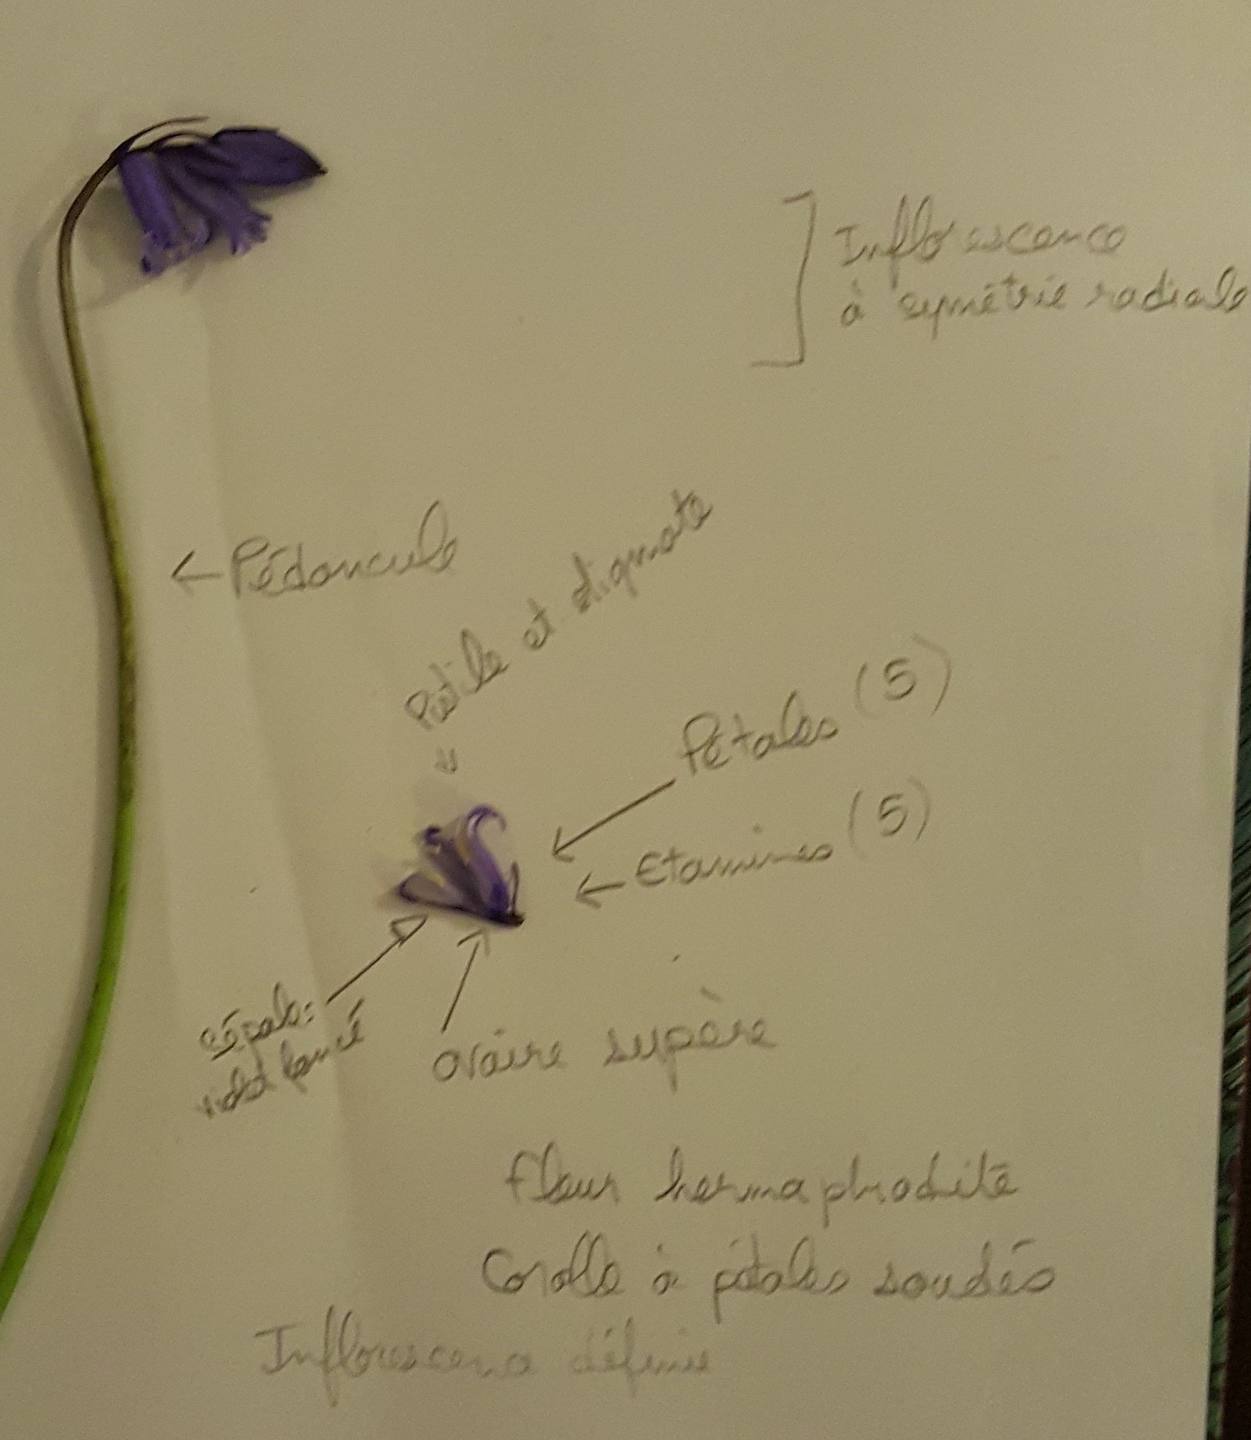 Inflorescence
à symétrie radiale
← Pédoncule
Pistile et stigmate
Pétales (5)
← Etamines (5)
sépales
violet foncé
ovaire supère
fleur hermaphrodite
Corolle à pétales soudés
Inflorescence définie